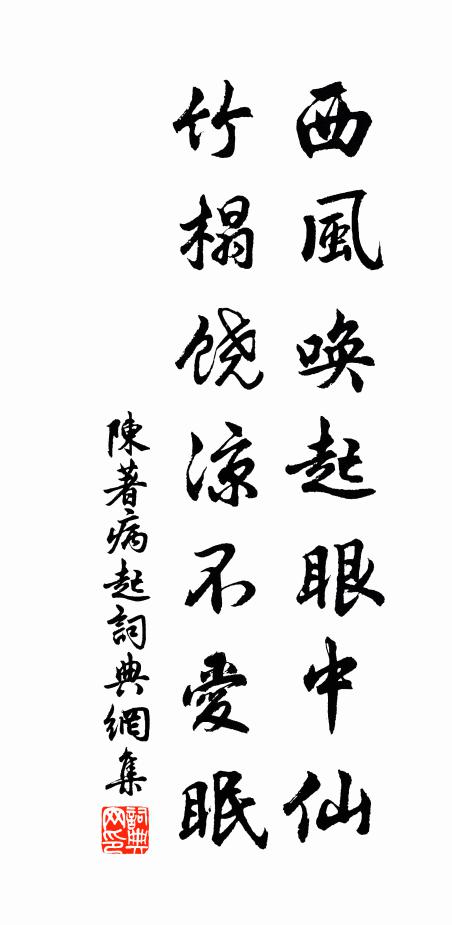 西風喚起眼中仙
竹榻饶涼不愛眠
陳著病起詞典網集
詞典网印